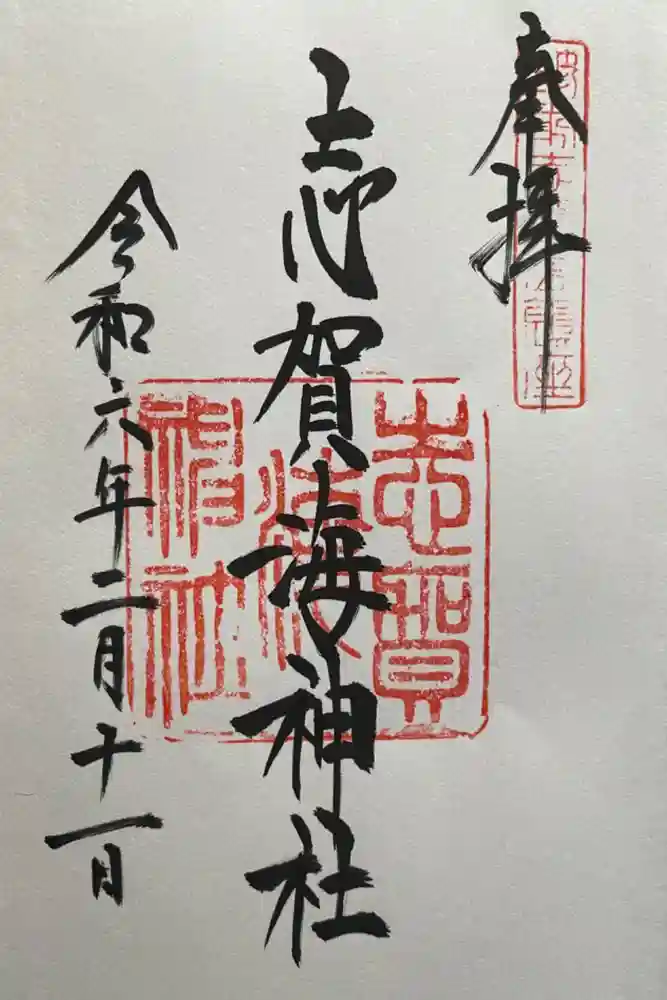 奉拝
志賀海神社
令和六年二月十一日
志賀海神社